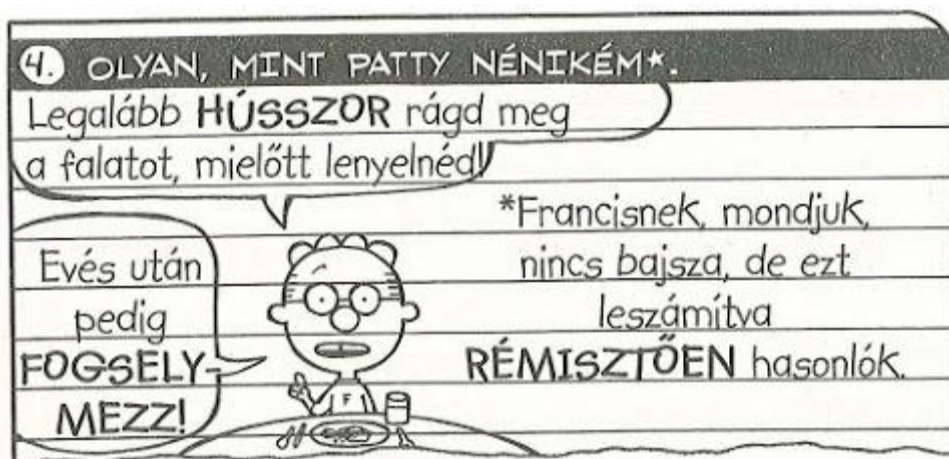 4. OLYAN, MINT PATTY NÉNIKÉM*.
Legalább HÚSSZOR rágd meg
a falatot, mielőtt lenyelnéd!
Evés után
pedig
FOGSELY-
MEZZ!
F
*Francisnek, mondjuk,
nincs bajsza, de ezt
leszámítva
RÉMISZTŐEN hasonlók.